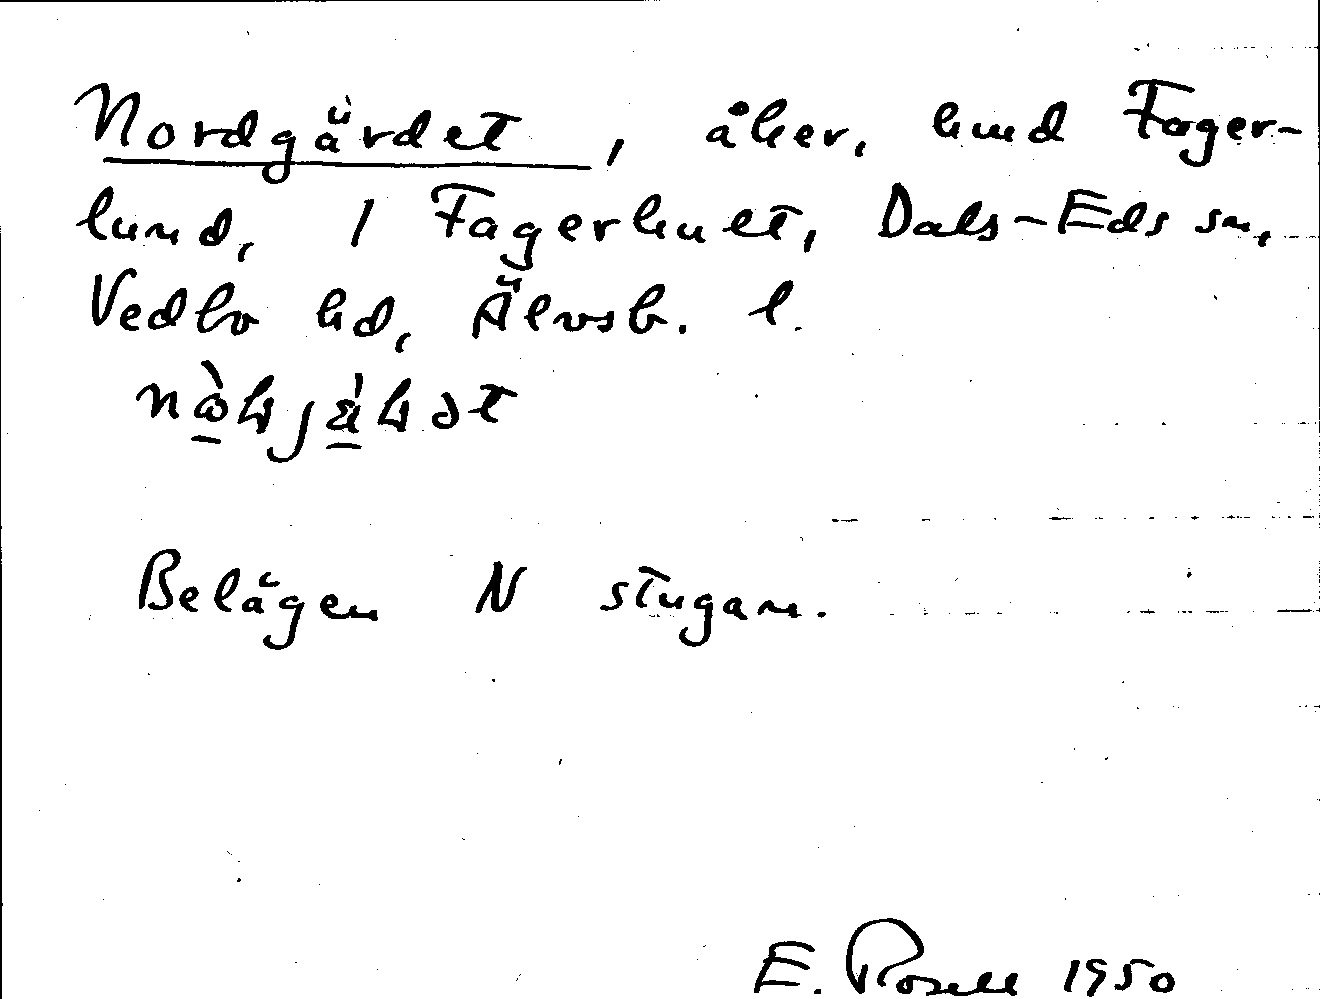 Nordgärdet, åker, hmd Fager-
lund, 1 Fagerhult, Dals-Eds sn,
Vedbo hd, Älvsb. l.
Belägen N stugan.
E. Rosell 1950